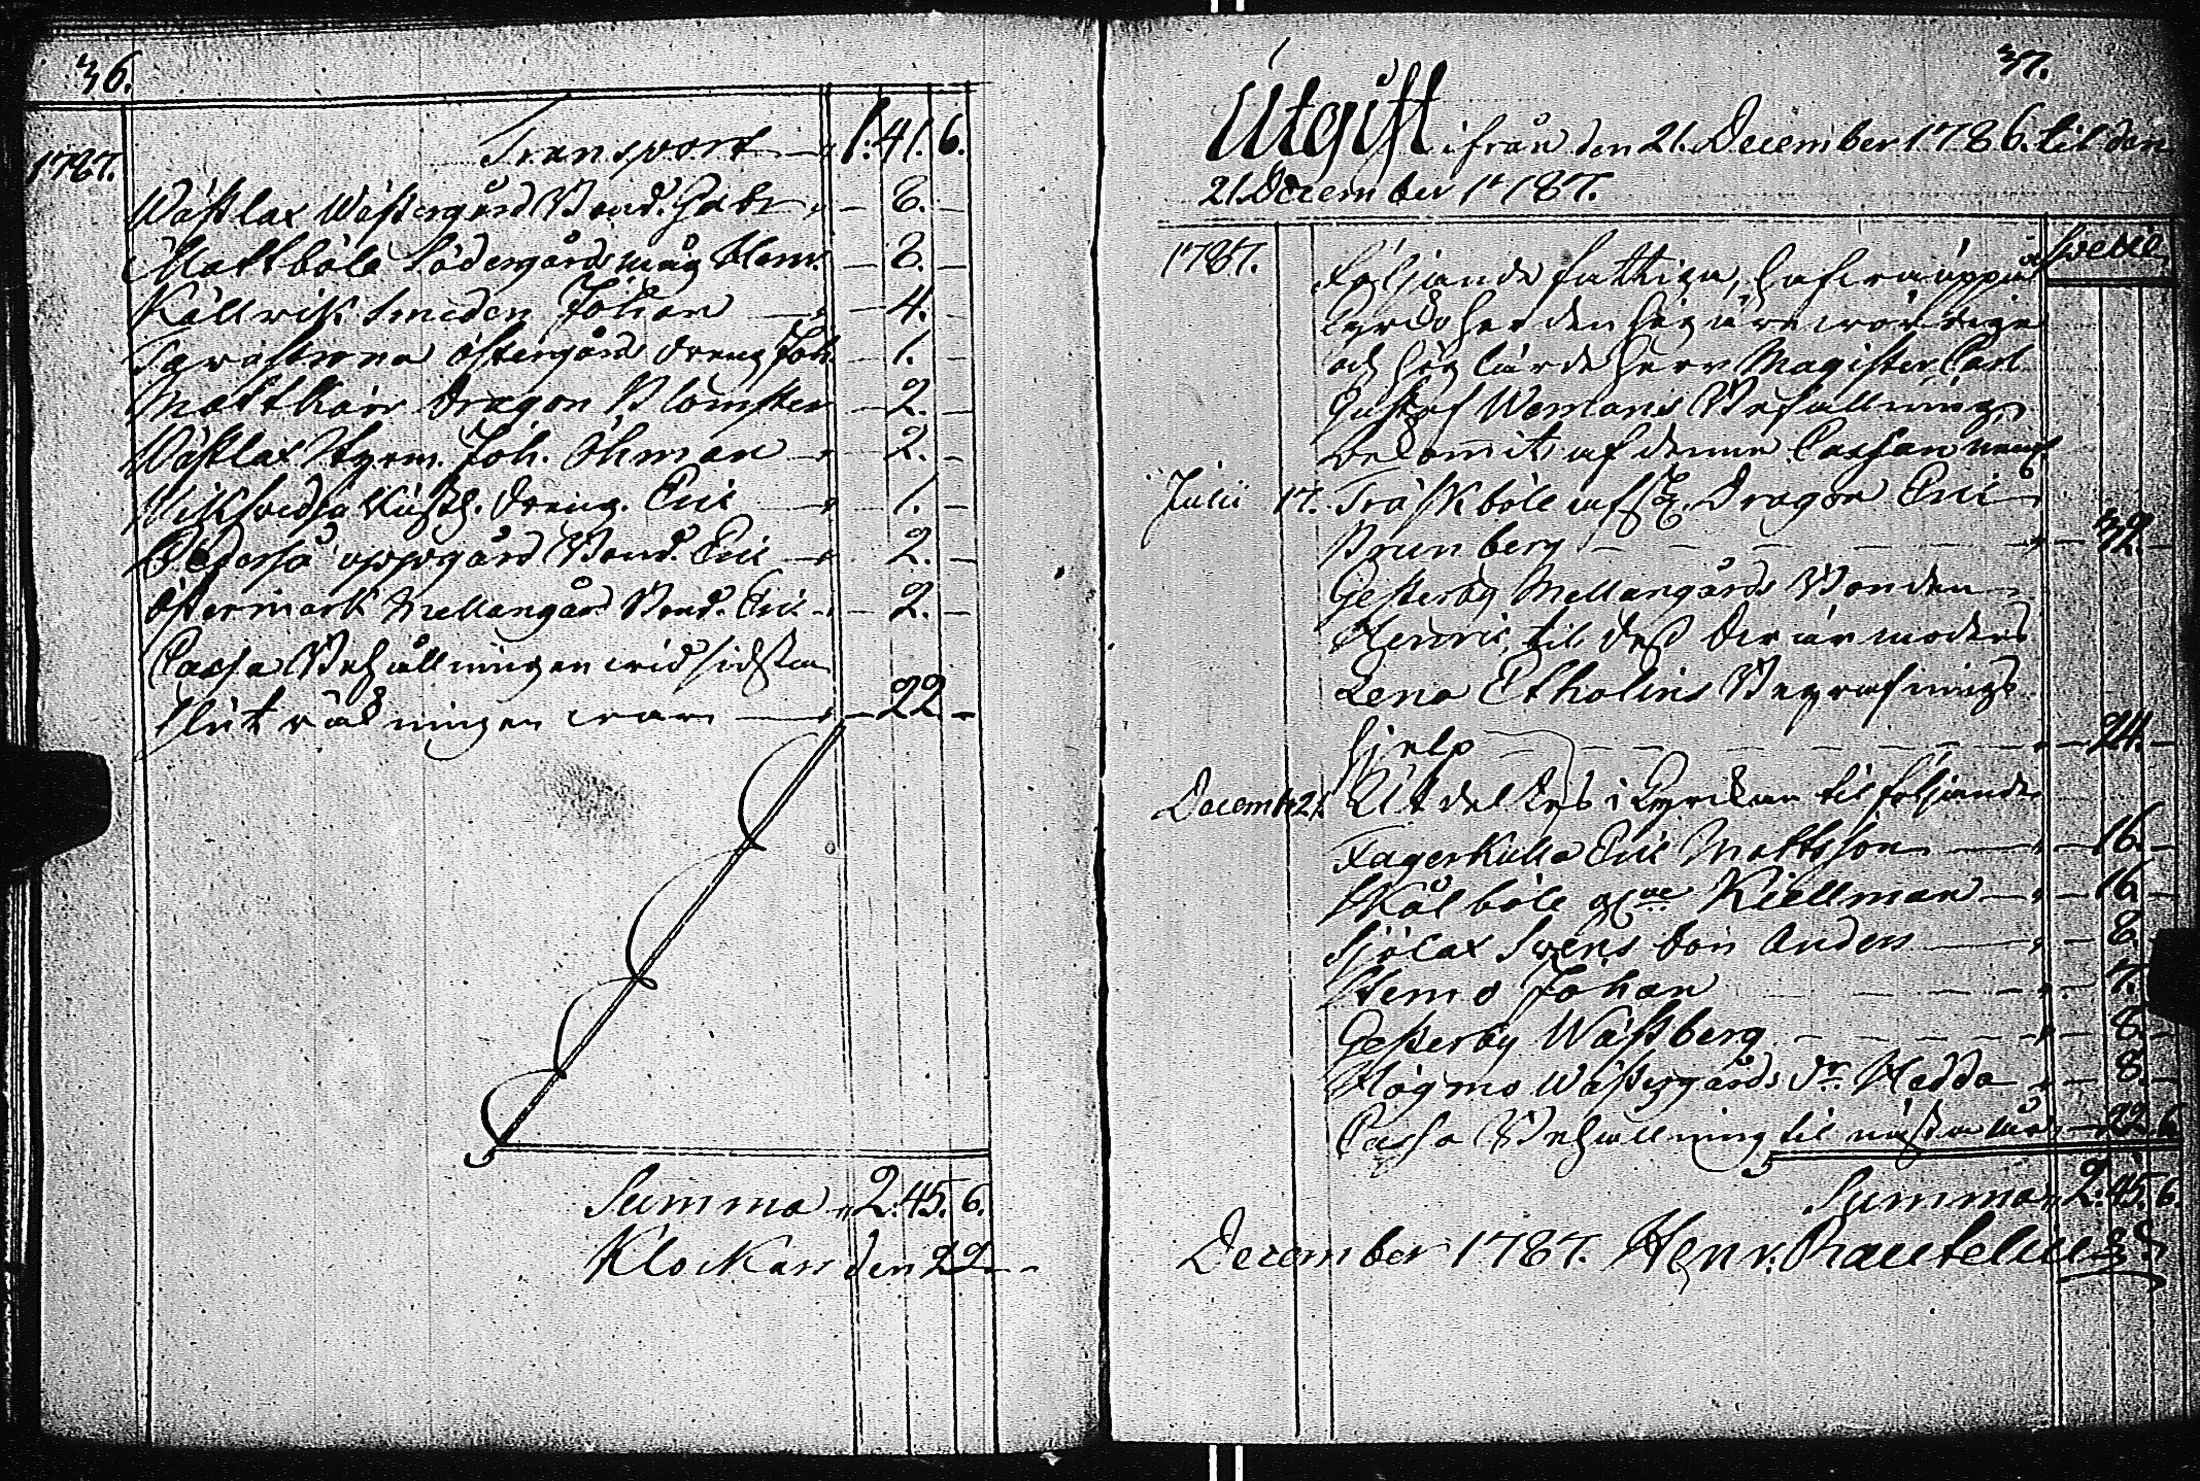 36.
1787.
Transport 1. 41. 6.
Wästlax Wästergård Bond. Gabr — 8. —
Mattböle Södergårds måg Henr. — 8. —
Källvik Smeden Johan — 4. —
Östergårds dreng Joh. — 1. —
Mattkärr Dragon Blomster — 2. —
Wästlax Styrm. Joh. Öhman — 2. —
dreng. Eric — 1. —
Pedersså oppgård Bond. Eric — 2. —
Östermark Mellangård Bond. Eric — 2. —
Cassa Behållningen wid sidsta
slut räkningen war — 22 —
Summa 2. 45. 6.
Klockars den 22
37.
Utgift ifrån den 21. December 1786. til den
21. December 1787.
1787. Följande fattiga, hafwa uppå
och höglärde Herr Magister Carl
Gustaf Wemans Befallning,
bekommit af denna Cassan
Julii 17. Träskböle afsk. Dragon Eric
Brunberg — 32. —
Gesterby Mellangårds Bonden
Henric, til deß Swärmoders
Lena Etholins Begrafnings
hjelp — 24. —
Decemb. 21. Utdeltes i Kyrckan til följande
Fagerkulla Eric Mattsson — 16. —
Skålböle Kiellman — 16. —
Sjölax Svens Son Anders — 8. —
Stemo Johan — 7. —
Gesterby Wästberg — 8. —
Högmo Wästergårds dr. Hedda — 8. —
Cassa Behållning til nästa år — 22. 6.
Summa 2. 45. 6.
December 1787. Henr. Rautelius